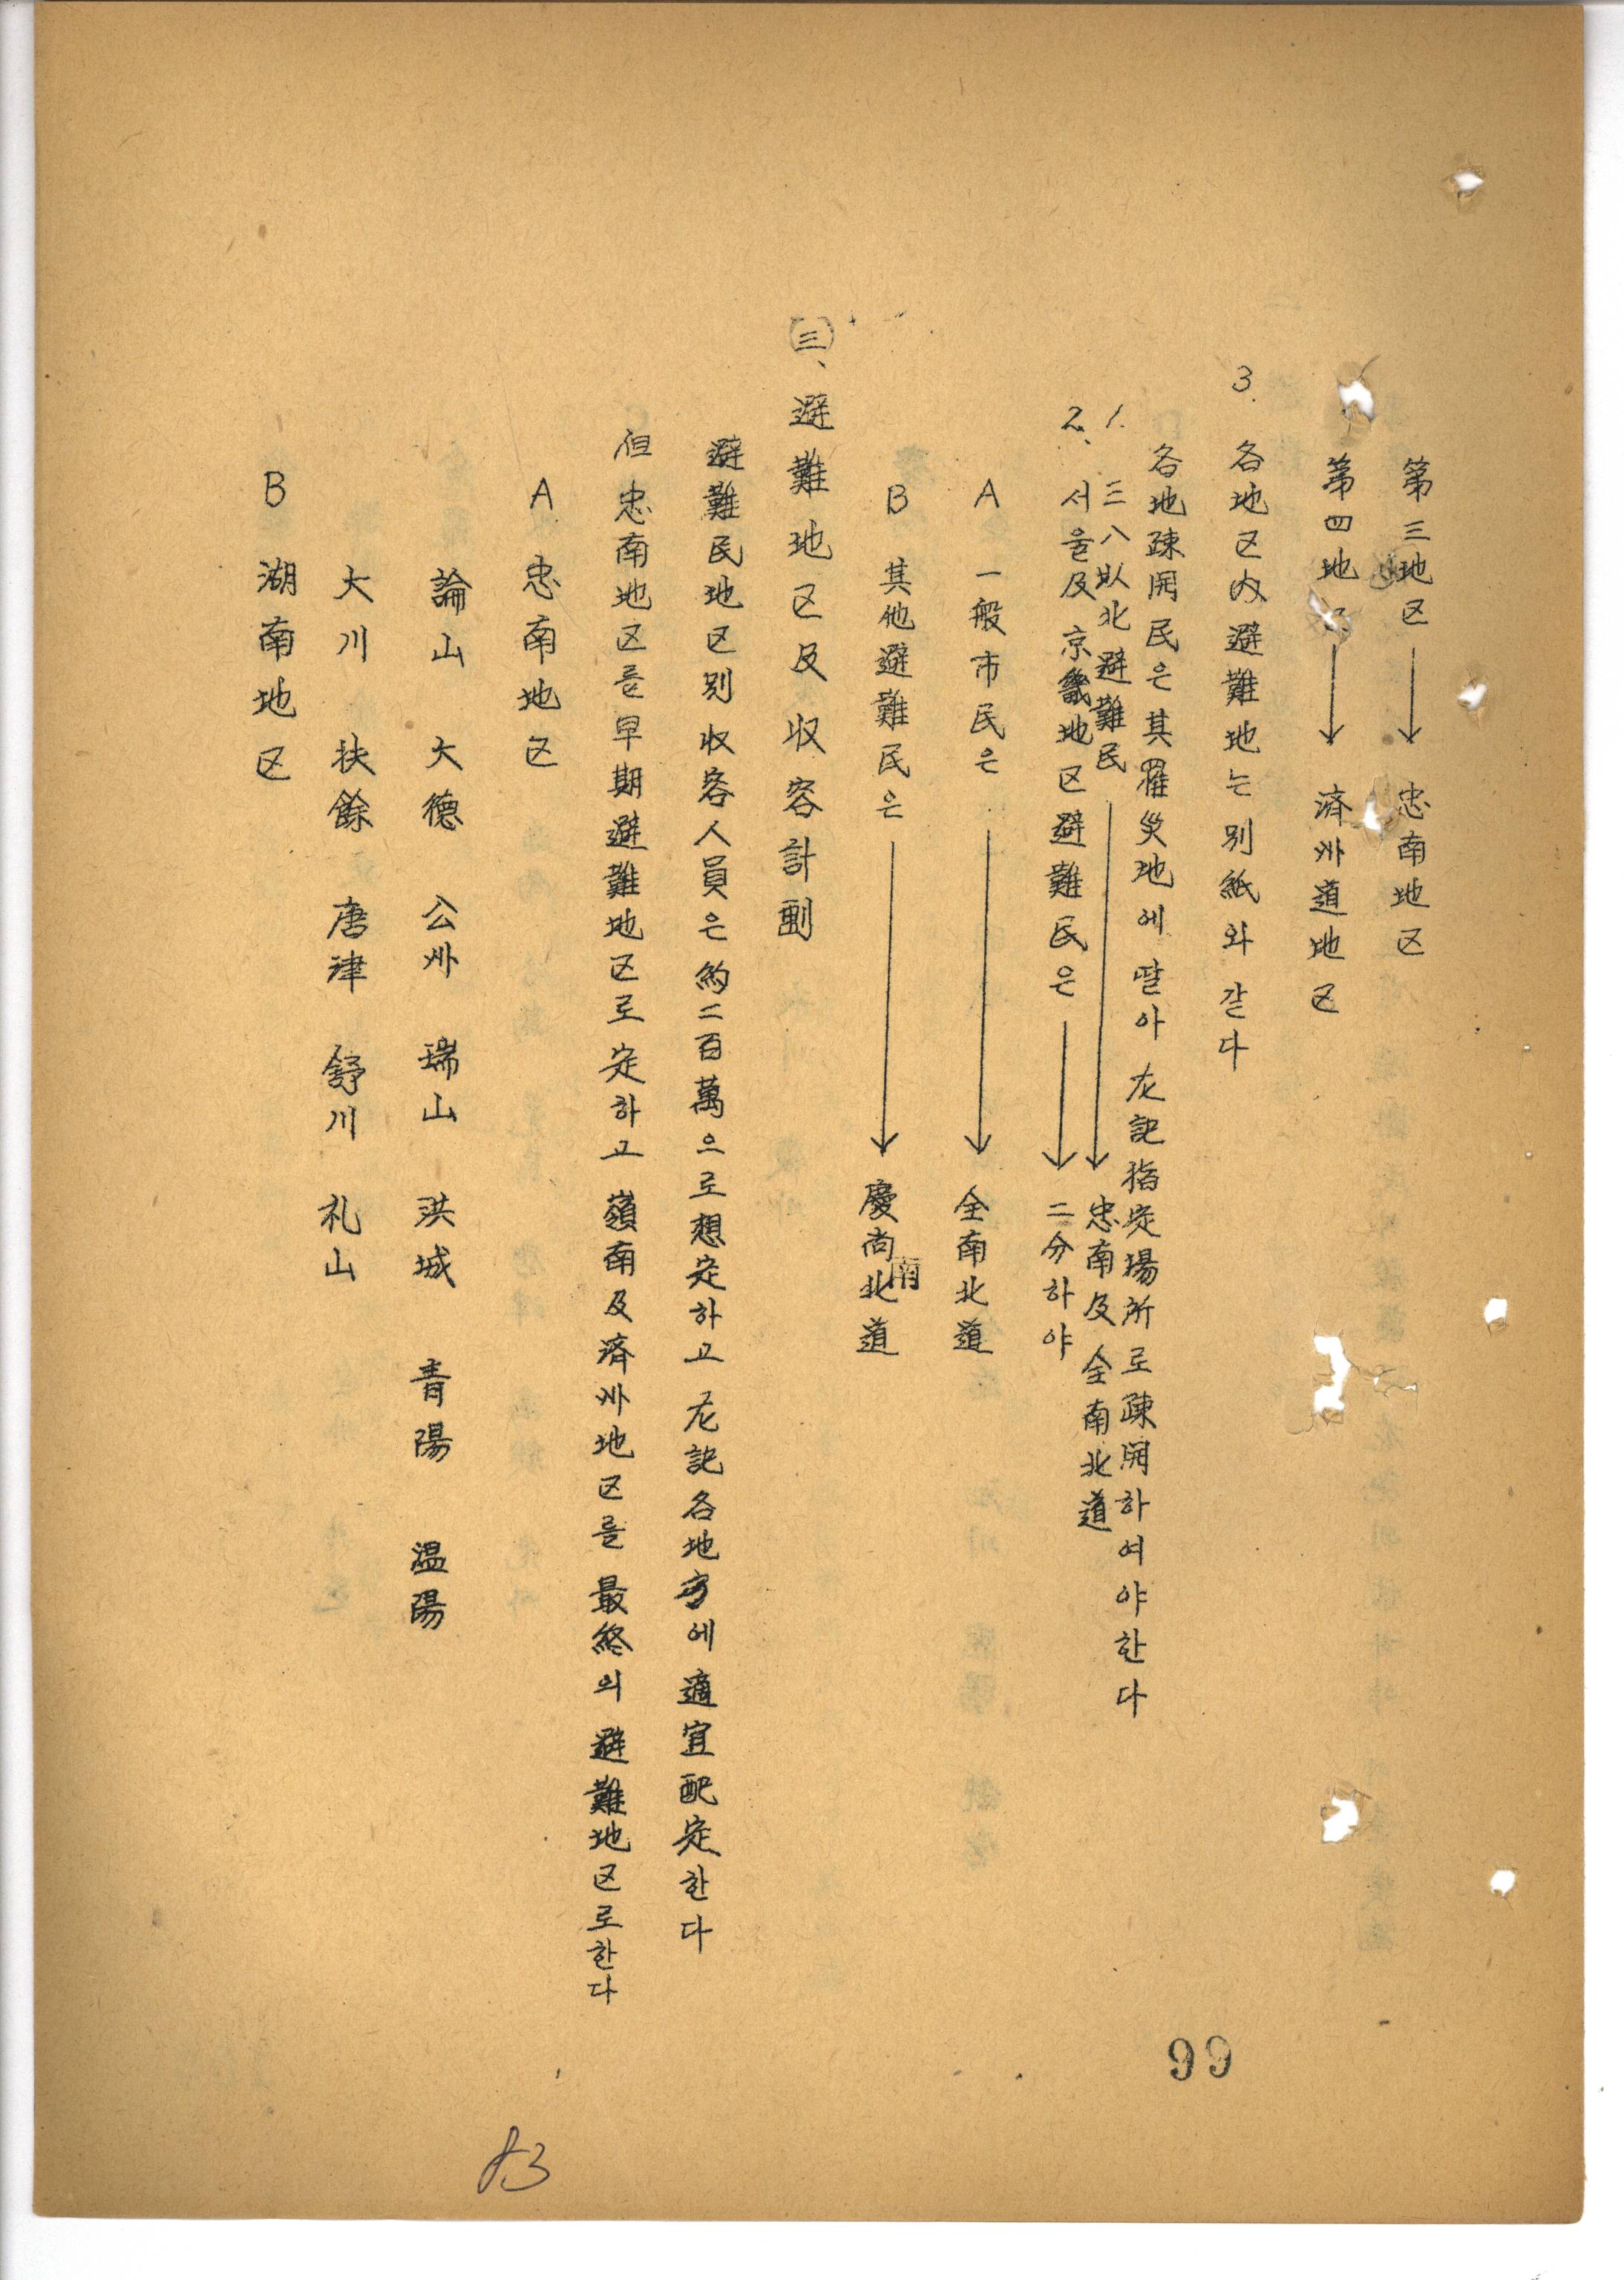 第三地区 → 忠南地区
第四地区 → 済州道地区
3. 各地区内避難地는別紙와같다
各地疎開民은其罹災地에딸아左記指定場所로疎開하여야한다
1. 三八以北避難民 → 忠南及全南北道
2、서울及京畿地区避難民은 → 二分하야
A 一般市民은 → 全南北道
B 其他避難民은 → 慶尚南北道
(三)、避難地区及収容計劃
避難民地区別収容人員은約二百萬으로想定하고左記各地方에適宜配定한다
但忠南地区를早期避難地区로定하고嶺南及済州地区를最終의避難地区로한다
A 忠南地区
論山 大德 公州 瑞山 洪城 青陽 温陽
大川 扶餘 唐津 舒川 礼山
B 湖南地区
99
83